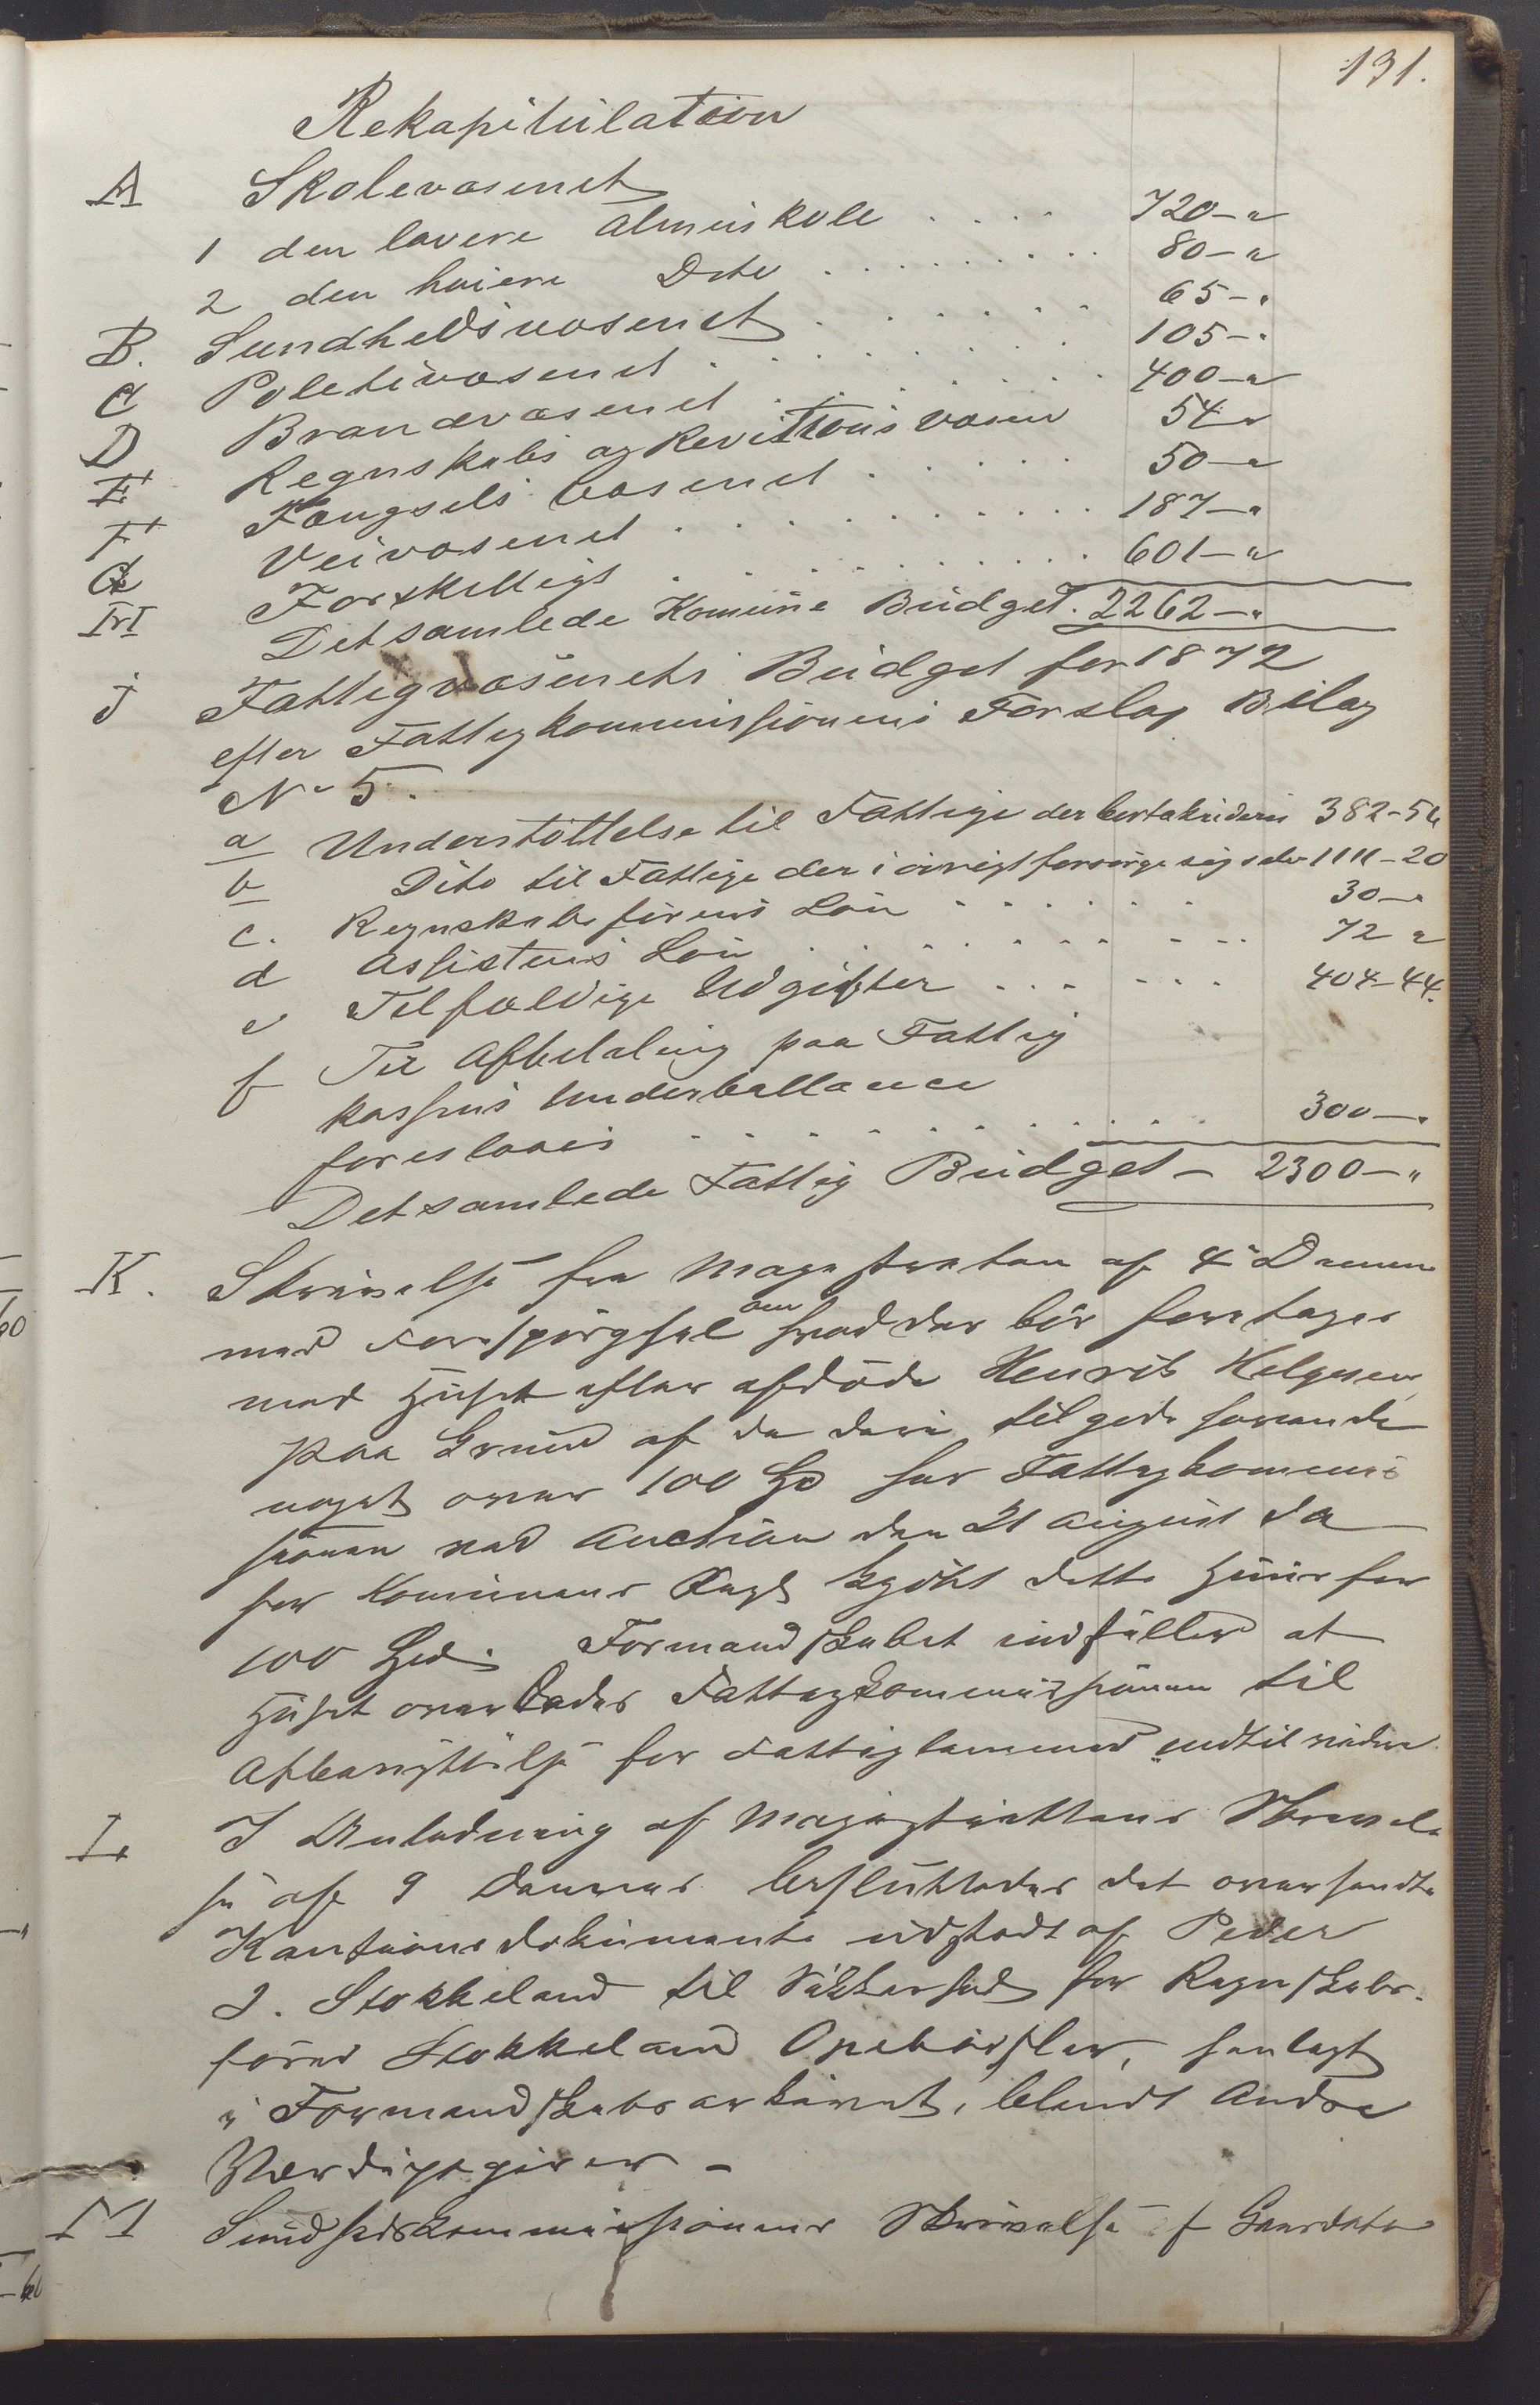 131.
Rekapitulation
A Skolevæsenet
1 den lavere Almuskole . . . . 720 – "
2 den høiere Dito . . . . . . . . 80 – "
B. Sundhedsvæsenet . . . . . . 65 – "
C Politivæsenet . . . . . . . . 105 – "
D Brandvæsenet . . . . . . . . 400 – "
E Regnskabs og Revitions væsen 54 "
F Fængsels væsenet . . . . . . 50 – "
G Veivæsenet . . . . . . . . . . 187 – "
H Forskjelligt . . . . . . . . . . 601 – "
Det samlede Komune Budget. 2262 – "
J Fattigvæsenets Budget for 1872
efter Fattigkommissionens Forslag Bilag
No 5.
a Understøttelse til Fattige der 382 – 56
b Dito til Fattige der i øvrigt forsørge sig selv 1111 – 20
c. Regnskabsførerens Løn . . . . . . 30 – "
d Assistens Løn . . . . . . . . . . 72 "
e Tilfældige Udgifter . . . . . . . 404 – 44.
f Til Afbetaling paa Fattig
kassens Underballance
foreslaaes . . . . . . . . . . 300 – "
Det samlede Fattig Budget – 2300 – "
K. Skrivelse fra Magistraten af 4de Dennes
med Forespørgsel om hvad der bør foretages
med Huset efter afdøde Henrik Helgesen,
paa Grund af de deri tilgode havende
noget over 100 Spd har Fattigkommis
sionen ved Auction den 21 August da
for Kommunens Regn kjøbt dette Huus for
100 Spd. Formandskabet indstiller at
Huset overlades Fattigkommissionen til
Afbenyttelse for Fattiglemmer indtil videre
L. I Anledning af Magistrattens Skrivel
se af 9 Dennes besluttedes det oversendte
Kautionsdokument udstedt af Peder
J. Stokkeland til Sikkerhed for Regnskabs-
fører Stokkeland Opebørsler, henlagt
i Formandskabsarkivet, blandt Andre
Værdipapirer –
M Sundhedskommissionens Skrivelse f Gaarsdato